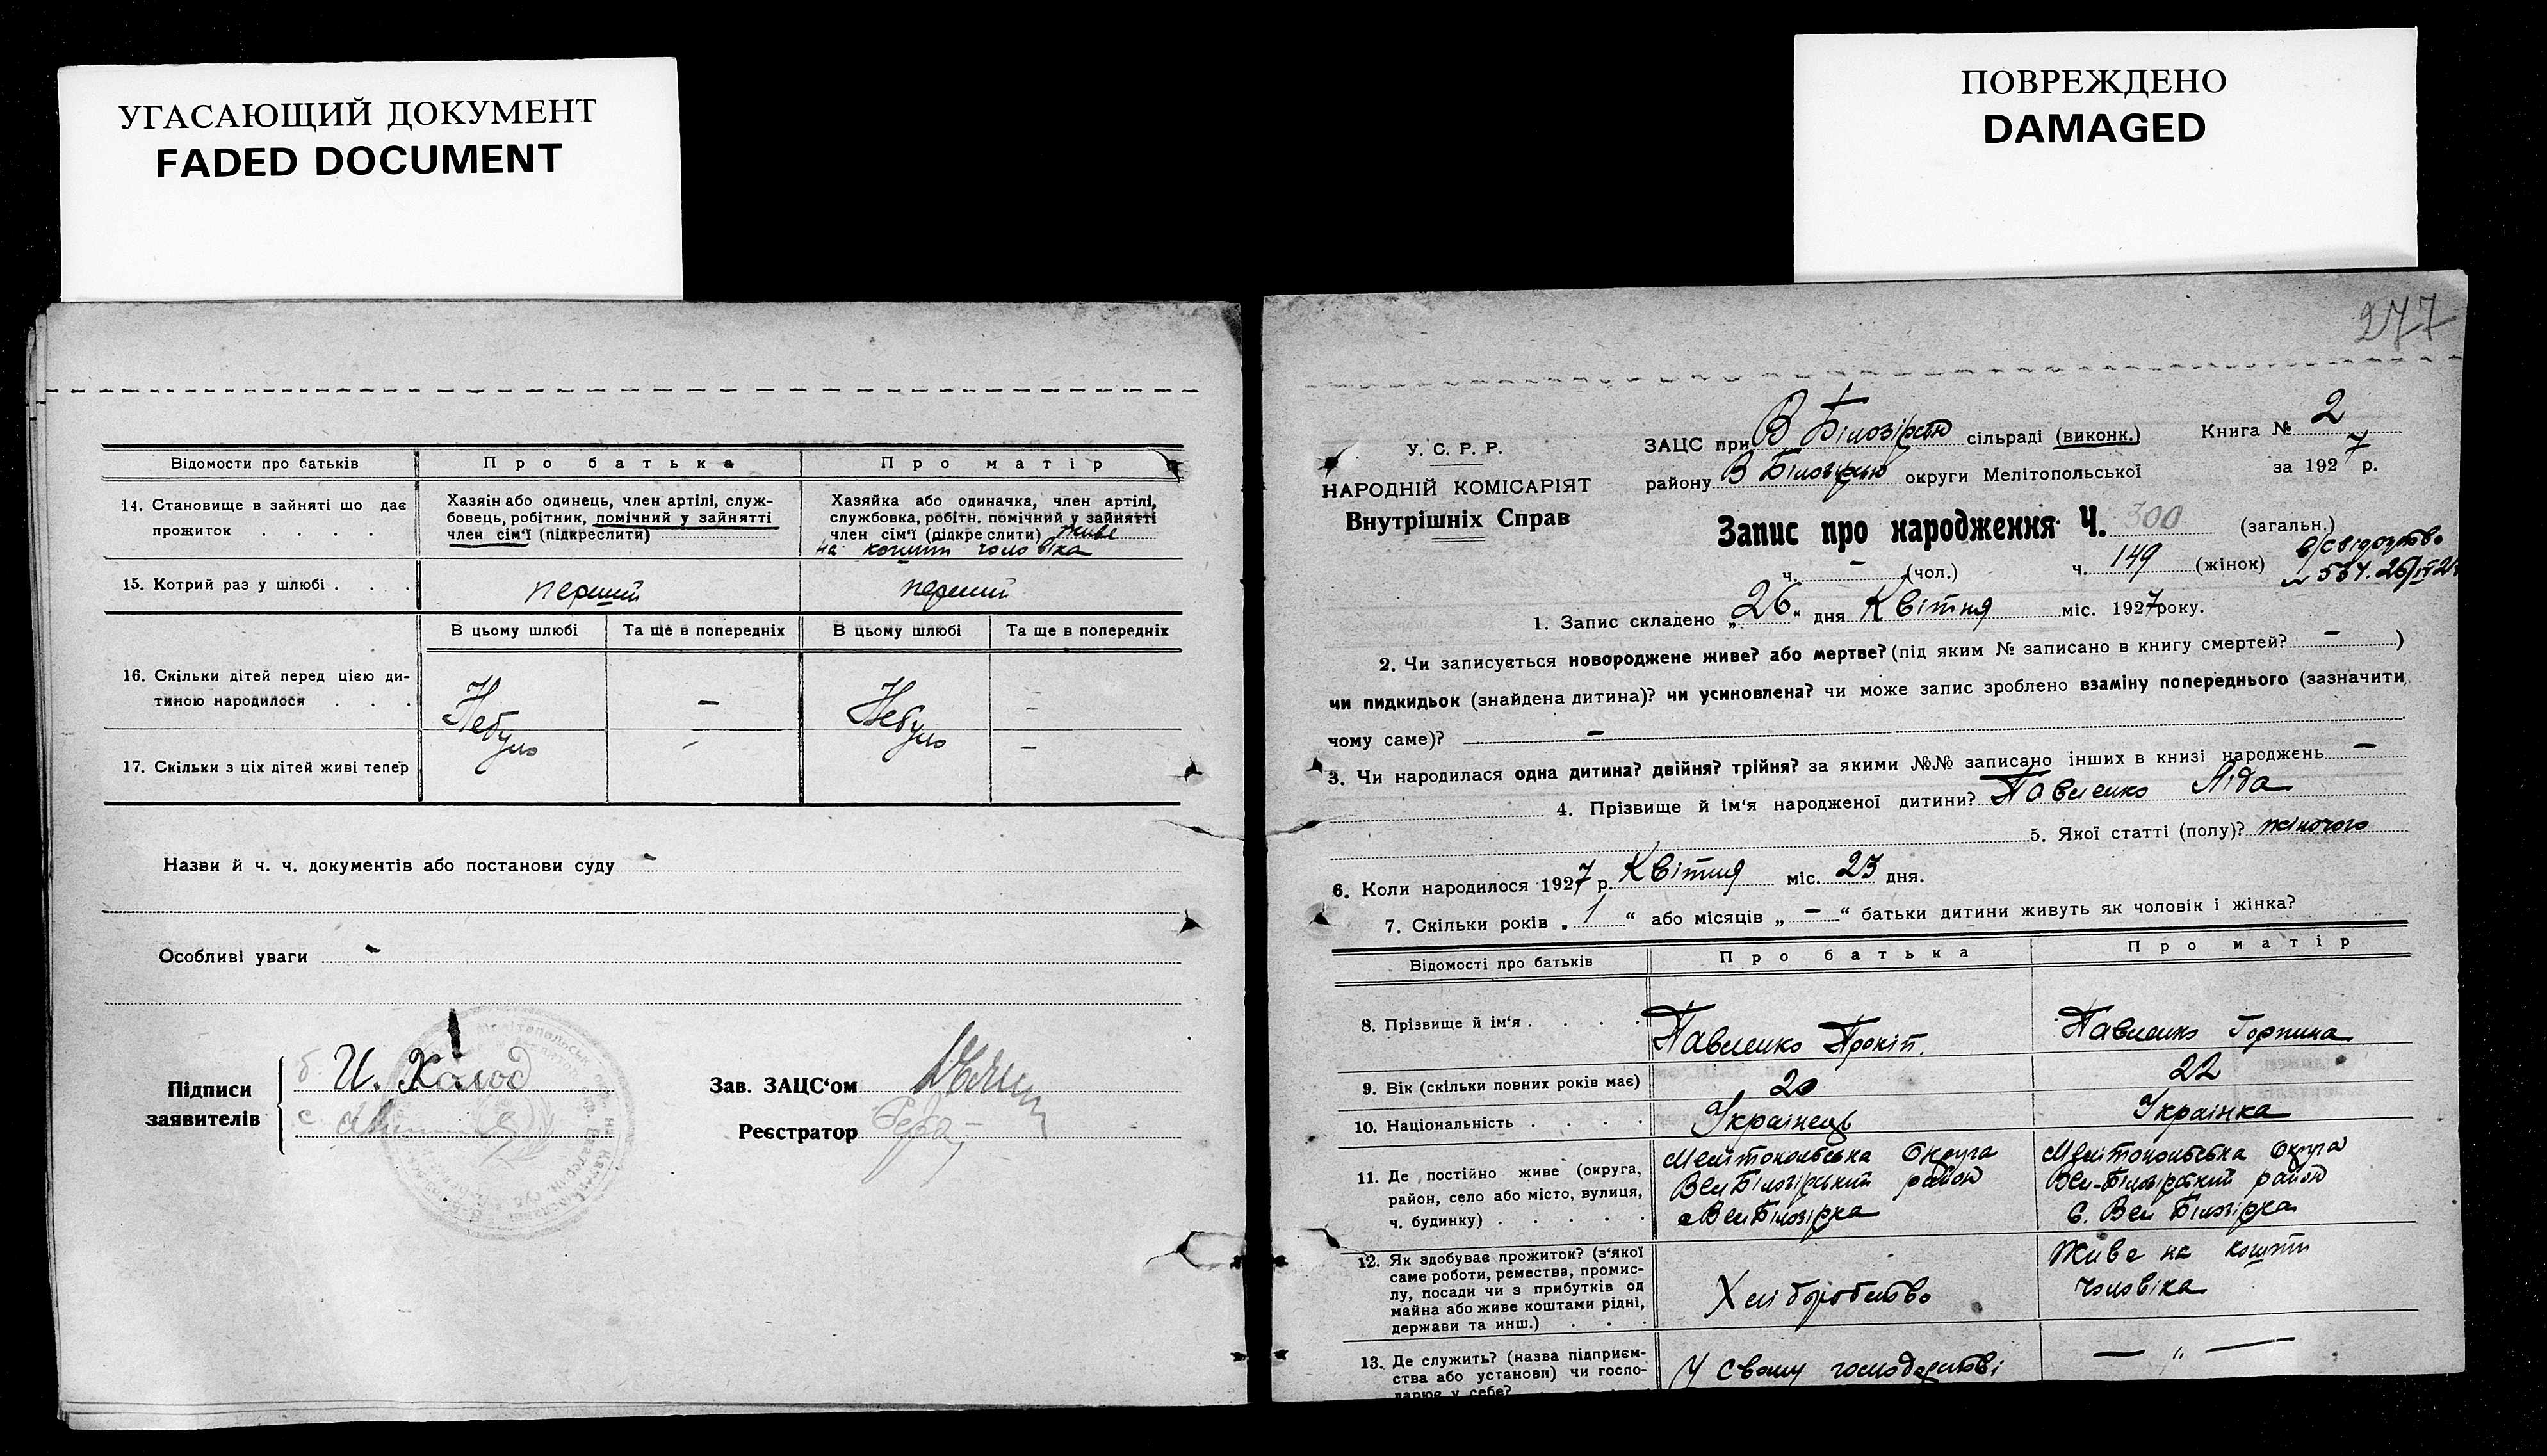 УГАСАЮЩИЙ ДОКУМЕНТ
FADED DOCUMENT
ПОВРЕЖДЕНО
DAMAGED
Відомости про батьків Про батька Про матір
14. Становище в зайняті що дає прожиток . . . .
Хазяін або одинець, член артілі, служ-
бовець, робітник, помічний у зайнятті
член сім'ї (підкреслити)
Хазяйка або одиначка, член артілі,
службовка, робітн. помічний у зайнятті
член сім'ї (підкреслити) живе
на кошти чоловіка
15. Котрий раз у шлюбі . . . перший перший
В цьому шлюбі Та ще в попередніх В цьому шлюбі Та ще в попередніх
16. Скільки дітей перед цією ди-
тиною народилося . . . Небуло – Небуло –
17. Скільки з ціх дітей живі тепер – –
Назви й ч. ч. документів або постанови суду -
Особливі уваги -
Підписи
заявителів
И. Холод
Зав. ЗАЦС'ом
Реєстратор
277
У. С. Р. Р.
НАРОДНІЙ КОМІСАРІЯТ
Внутрішніх Справ
ЗАЦС при В Білозірсю сільраді (виконк.) Книга № 2
району В Білозірсю округи Мелітопольської за 1927 р.
Запис про народження Ч. 300 (загальн.)
ч. – (чол.) ч. 149 (жінок)
1. Запис складено „26" дня Квітня міс. 1927 року.
2. Чи записується новороджене живе? або мертве? (під яким № записано в книгу смертей? – )
чи пидкидьок (знайдена дитина)? чи усиновлена? чи може запис зроблено взаміну попереднього (зазначити,
чому саме)? –
3. Чи народилася одна дитина? двійня? трійня? за якими №№ записано інших в книзі народжень –
4. Прізвище й ім'я народженої дитини? Павленко Ліда
5. Якої статті (полу)? жіночого
6. Коли народилося 1927 р. Квітня міс. 23 дня.
7. Скільки років „1" або місяців „–" батьки дитини живуть як чоловік і жінка?
Відомості про батьків Про батька Про матір
8. Прізвище й ім'я . . . . Павленко Прокіп. Павленко Горпина
9. Вік (скільки повних років має) 20 22
10. Національність . . . . Українець Українка
11. Де постійно живе (округа,
район, село або місто, вулиця,
ч. будинку) . . . . .
Мелітопольська Округа
Вел Білозірський район
с Вел Білозірка
Мелітопольська Округа
Вел-Білозірський район
С. Вел Білозірка
12. Як здобуває прожиток? (з'якої
саме роботи, ремества, промис-
лу, посади чи з прибутків од
майна або живе коштами рідні,
держави та инш.) . . .
Хліборобство
Живе на кошти
чоловіка
13. Де служить? (назва підприєм-
ства або установи) чи госпо-
дарює у себе?
У своему господарстві
— „ —